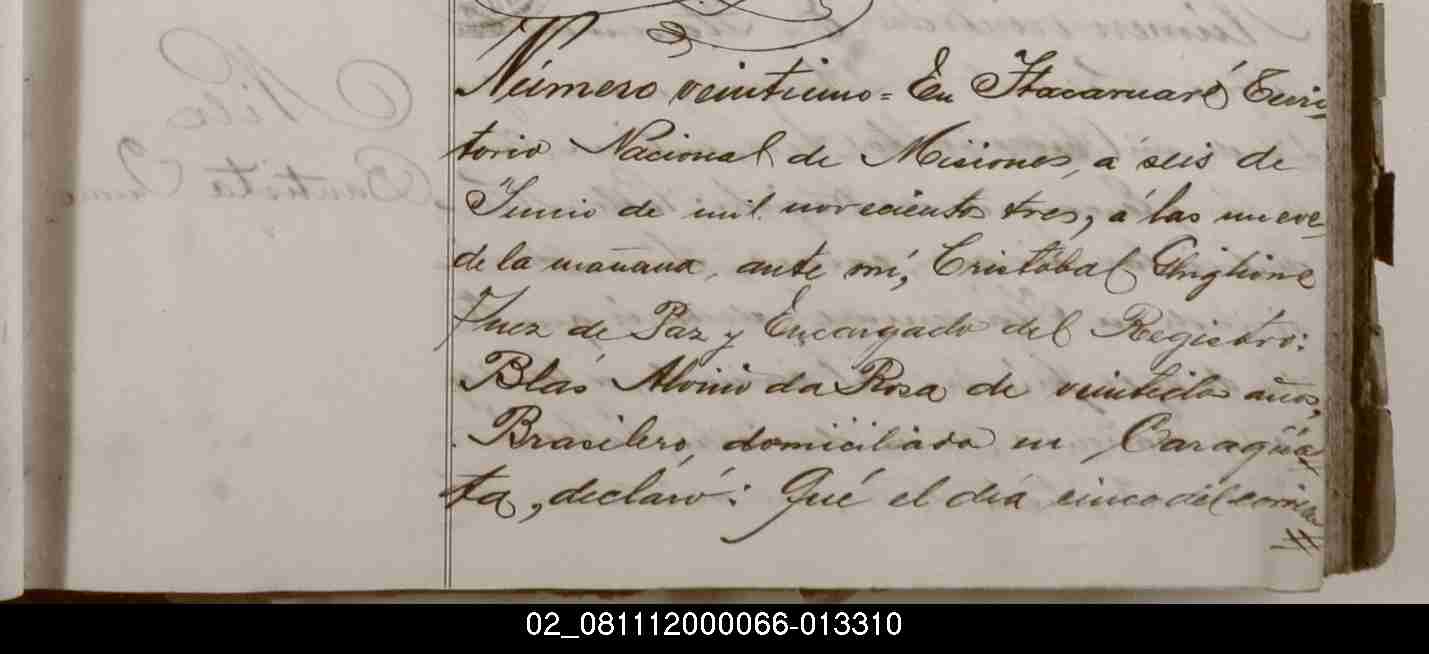 Número veintiuno = En Itacaruaré Terri-
torio Nacional de Misiones, a seis de
Junio de mil novecientos tres, á las nueve
de la mañana, ante mí, Cristóbal Ghiglione
Juez de Paz y Encargado del Registro:
Blás Alvino da Rosa de veintidos años,
Brasilero, domiciliado en Caragüa-
ta, declaró: Qué el día cinco del corrien
02_081112000066-013310